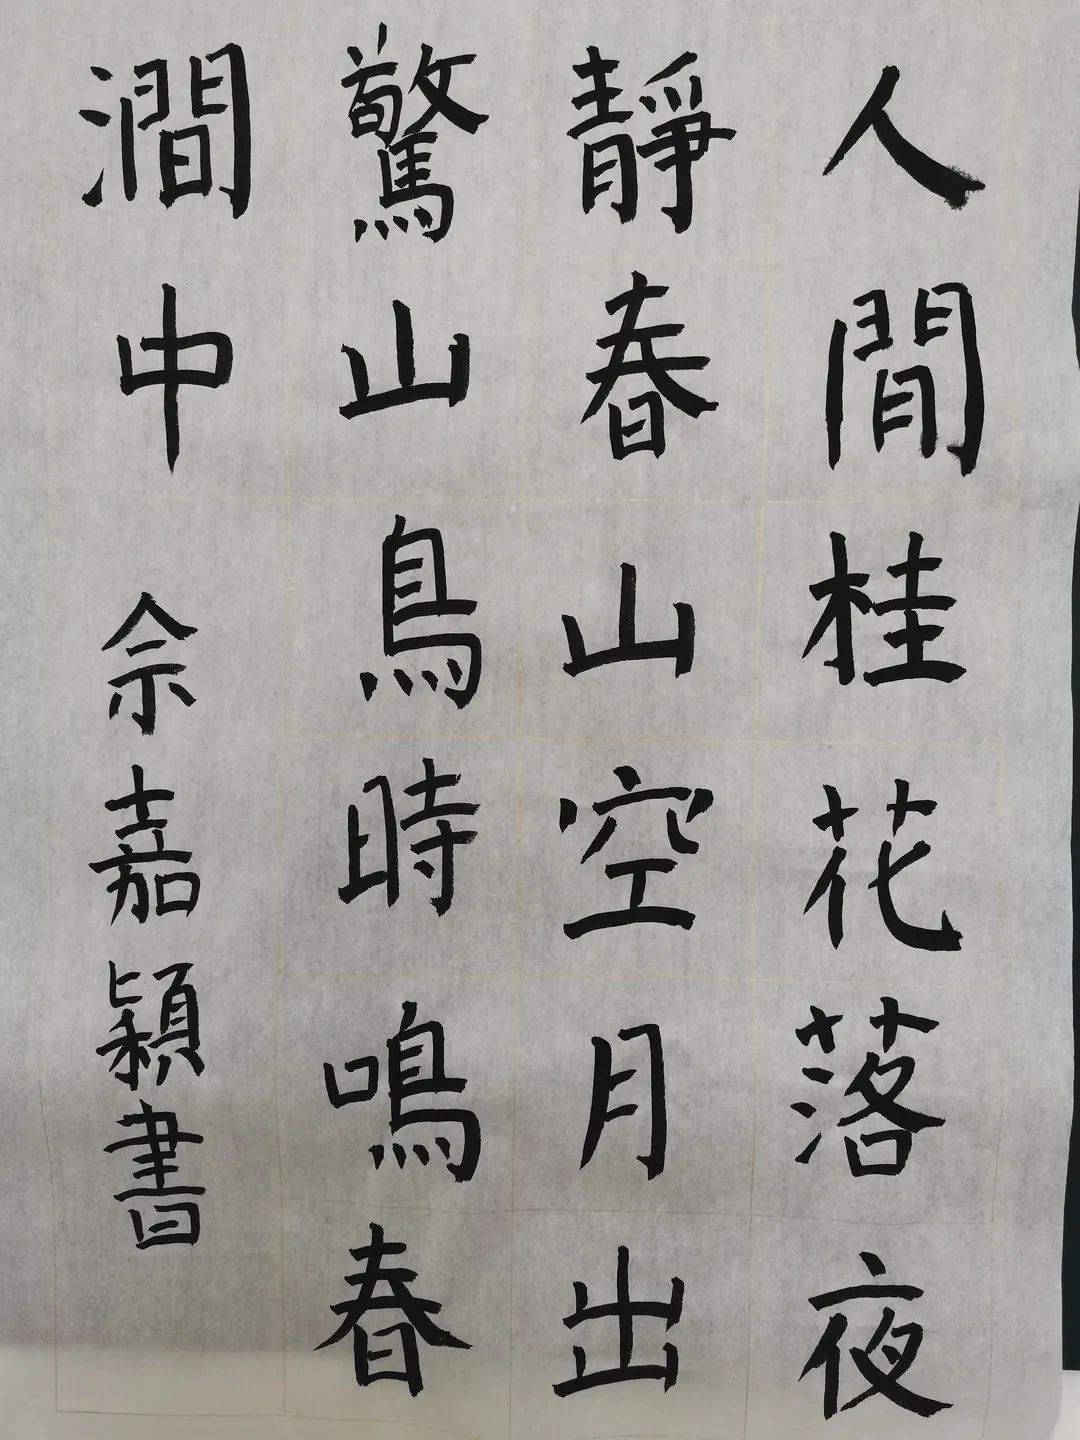 人間桂花落夜
靜春山空月出
驚山鳥時鳴春
澗中 佘嘉穎書